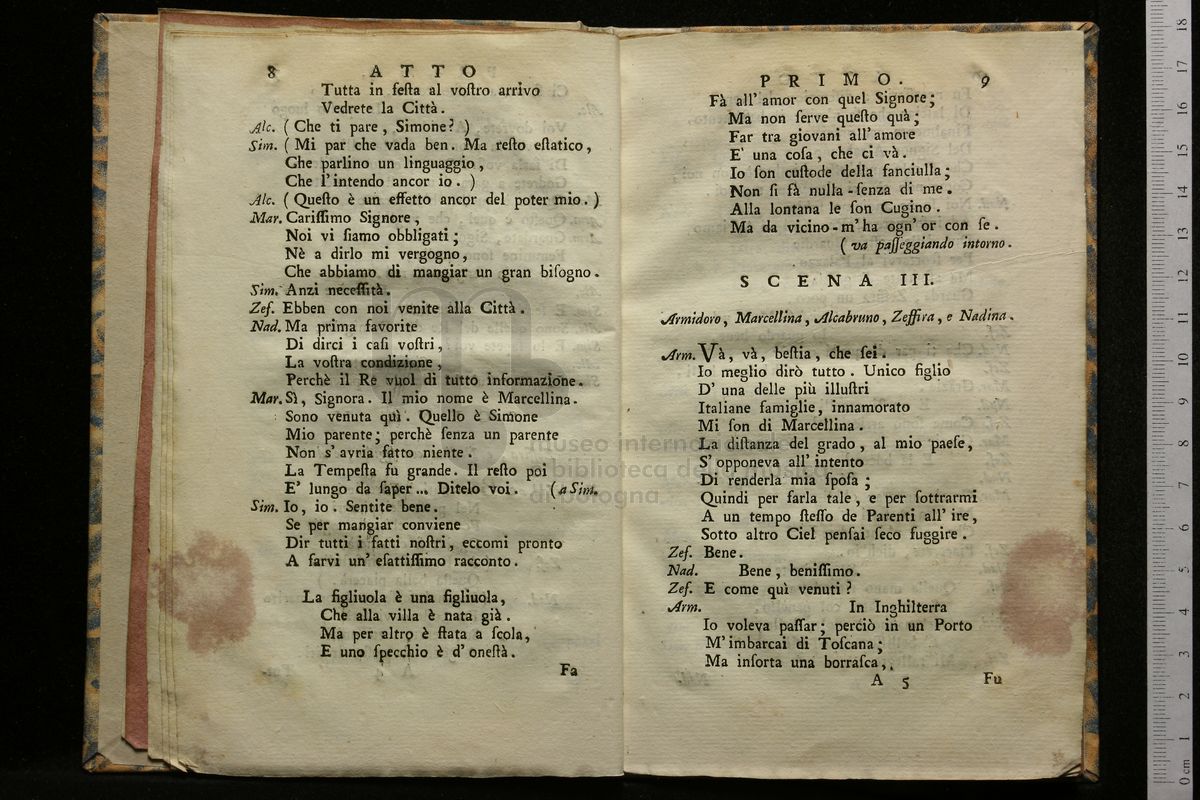 8 ATTO
Tutta in feſta al voſtro arrivo
Vedrete la Città.
Alc. ( Che ti pare, Simone? )
Sim. ( Mi par che vada ben. Ma reſto eſtatico,
Che parlino un linguaggio,
Che l'intendo ancor io. )
Alc. ( Queſto è un effetto ancor del poter mio. )
Mar. Cariſſimo Signore,
Noi vi ſiamo obbligati;
Nè a dirlo mi vergogno,
Che abbiamo di mangiar un gran biſogno.
Sim. Anzi neceſſità.
Zef. Ebben con noi venite alla Città.
Nad. Ma prima favorite
Di dirci i caſi voſtri,
La voſtra condizione,
Perchè il Re vuol di tutto informazione.
Mar. Sì, Signora. Il mio nome è Marcellina.
Sono venuta quì. Quello è Simone
Mio parente; perchè ſenza un parente
Non s'avria fatto niente.
La Tempeſta fu grande. Il reſto poi
E' lungo da ſaper... Ditelo voi. (a Sim.
Sim. Io, io. Sentite bene.
Se per mangiar conviene
Dir tutti i fatti noſtri, eccomi pronto
A farvi un' eſattiſſimo racconto.
La figliuola è una figliuola,
Che alla villa è nata già.
Ma per altro è ſtata a ſcola,
E uno ſpecchio è d'oneſtà.
Fa
PRIMO. 9
Fà all'amor con quel Signore;
Ma non ſerve queſto quà;
Far tra giovani all'amore
E' una coſa, che ci và.
Io ſon cuſtode della fanciulla;
Non ſi fà nulla-ſenza di me.
Alla lontana le ſon Cugino.
Ma da vicino-m'ha ogn'or con ſe.
( va paſſeggiando intorno.
SCENA III.
Armidoro, Marcellina, Alcabruno, Zeffira, e Nadina.
Arm. Và, và, beſtia, che ſei.
Io meglio dirò tutto. Unico figlio
D'una delle più illuſtri
Italiane famiglie, innamorato
Mi ſon di Marcellina.
La diſtanza del grado, al mio paeſe,
S'opponeva all'intento
Di renderla mia ſpoſa;
Quindi per farla tale, e per ſottrarmi
A un tempo ſteſſo de Parenti all'ire,
Sotto altro Ciel penſai ſeco fuggire.
Zef. Bene.
Nad. Bene, beniſſimo.
Zef. E come quì venuti?
Arm. In Inghilterra
Io voleva paſſar; perciò in un Porto
M'imbarcai di Toſcana;
Ma inſorta una borraſca,
A 5 Fu
museo internazionale
e biblioteca della musica
di bologna
0 cm 1 2 3 4 5 6 7 8 9 10 11 12 13 14 15 16 17 18